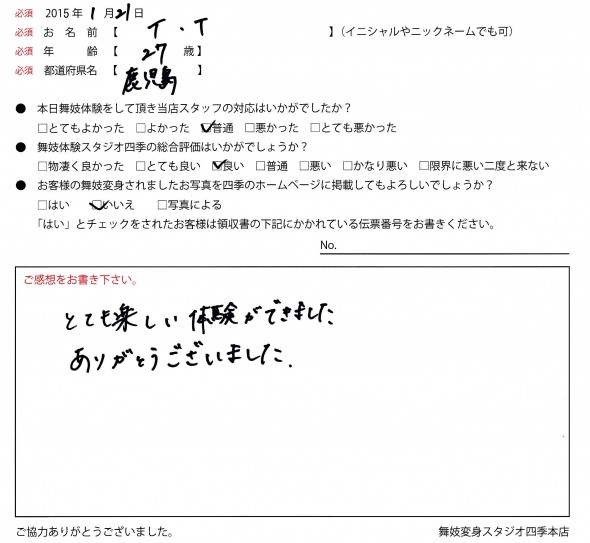 必須 2015年 1月21日
必須 お名前【 T.T 】(イニシャルやニックネームでも可)
必須 年齢【 27 歳】
必須 都道府県名【 鹿児島 】
● 本日舞妓体験をして頂き当店スタッフの対応はいかがでしたか?
□とてもよかった □よかった ☑普通 □悪かった □とても悪かった
● 舞妓体験スタジオ四季の総合評価はいかがでしょうか?
□物凄く良かった □とても良い ☑良い □普通 □悪い □かなり悪い □限界に悪い二度と来ない
● お客様の舞妓変身されましたお写真を四季のホームページに掲載してもよろしいでしょうか?
□はい ☑いいえ □写真による
「はい」とチェックをされたお客様は領収書の下記にかかれている伝票番号をお書きください。
No.
ご感想をお書き下さい。
とても楽しい体験ができました
ありがとうございました.
ご協力ありがとうございました。 舞妓変身スタジオ四季本店